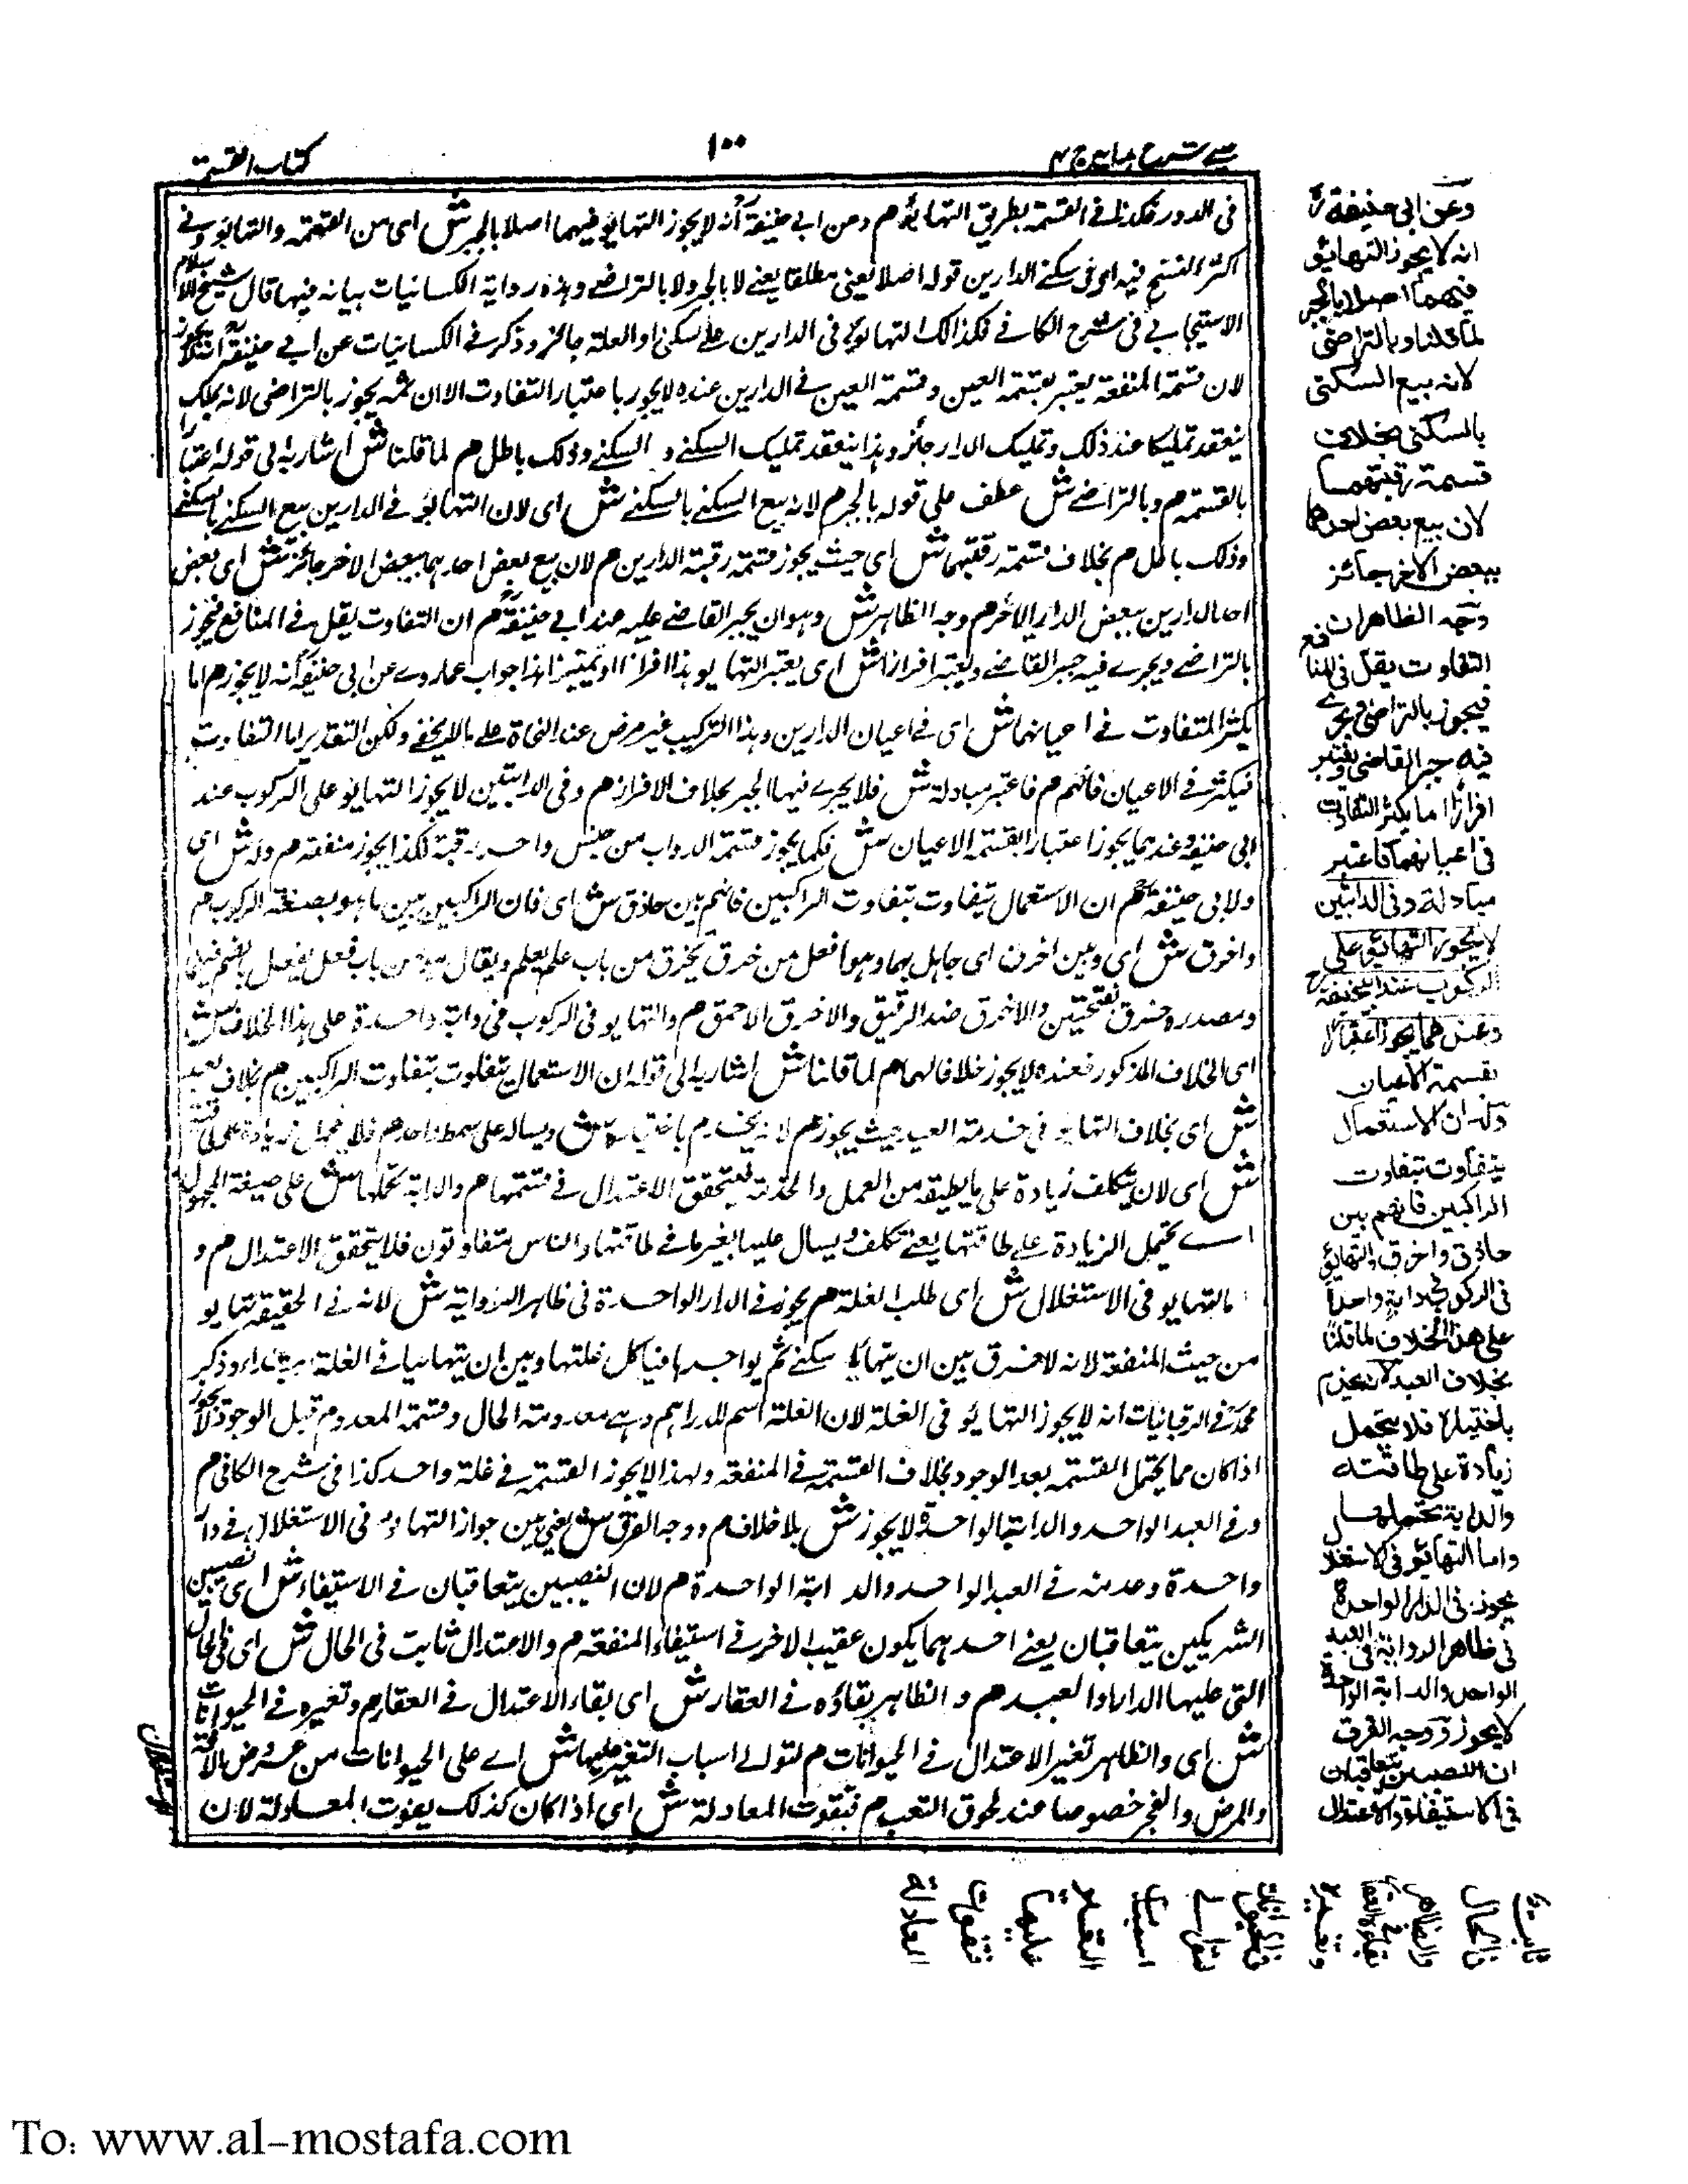 عينى شرح هداية ج ٤
١٠٠
كتاب القسمة
فى الدور فكذا فى القسمة بطريق التهايؤ م وعن ابى حنيفة انه لا يجوز التهايؤ فيهما اصلا بالجبر ش اى من القسمة والتهايؤ وفى
اكثر النسخ فيه اى فى سكنى الدارين قوله اصلا يعنى مطلقا يعنى لا بالجبر ولا بالتراضى وهذه رواية الكسانيات بيانه فيها قال شيخ الاسلام
الاسبيجابى فى شرح الكافى فكذلك التهايؤ فى الدارين على سكنى او الغلة جائز وذكر فى الكسانيات عن ابى حنيفة انه لا يجوز
لان قسمة المنفعة يعتبر بقسمة العين وقسمة العين فى الدارين عنده لا يجوز باعتبار التفاوت الا ان ثمه يجوز بالتراضى لانه
ينعقد تمليكا عند ذلك وتمليك الدار جائز وهذا ينعقد تمليك السكنى السكنى وذلك باطل م لما قلنا ش اشار به الى قوله اعتبارا
بالقسمة م وبالتراضى ش عطف على قوله بالجبر م لانه بيع السكنى بالسكنى ش اى لان التهايؤ فى الدارين بيع السكنى بالسكنى
وذلك باطل م بخلاف قسمة رقبتهما ش اى حيث يجوز قسمة رقبة الدارين م لان بيع بعض احدهما ببعض الاخر جائز ش اى بعض
احد الدارين ببعض الدار الاخر م وجه الظاهر ش وهو ان يجبر القاضى عليه عند ابى حنيفة م ان التفاوت يقل فى المنافع فيجوز
بالتراضى ويجرى فيه جبر القاضى ويعتبر افرازا ش اى يعتبر التهايؤ هذا افرازا او تمييزا هذا جواب عما روى عن ابى حنيفة انه لا يجوز م اما
يكثر التفاوت فى اعيانهما ش اى فى اعيان الدارين وهذا التركيب غير مرض عند النحاة على ما لا يخفى ولكن التقدير اما التفاوت
فيكثر فى الاعيان فافهم م فاعتبر مبادلة ش فلا يجرى فيها الجبر بخلاف الافراز م وفى الدابتين لا يجوز التهايؤ على الركوب عند
ابى حنيفة وعندهما يجوز اعتبارا بقسمة الاعيان ش فكما يجوز قسمة الدواب من جنس واحد رقبة فكذا يجوز منفعة م وله ش اى
ولابى حنيفة م ان الاستعمال يتفاوت بتفاوت الراكبين فانهم بين حاذق ش اى فان الراكبين بين ماهو بصنعة الركوب م
واخرق ش اى وبين اخرق اى جاهل بها وهو افعل من خرق يخرق من باب علم يعلم ويقال من باب فعل يفعل بالضم فيهما
ومصدره خرق بفتحتين والاخرق ضد الرفيق والاخرق الاحمق م والتهايؤ فى الركوب فى دابة واحدة على هذا الخلاف ش
اى الخلاف المذكور فعنده لا يجوز خلافا لهما م لما قلنا ش اشار به الى قوله ان الاستعمال يتفاوت بتفاوت الراكبين م بخلاف العبد
ش اى بخلاف التهايؤ فى خدمة العبد حيث يجوز م لانه يخدم باختياره ش م فلا يتحمل زيادة على طاقته
ش اى لان يتكلف زيادة على ما يطيقه من العمل والخدمة فيتحقق الاعتدال فى قسمتها م والدابة تحملها ش على صيغة المجهول
اى يحتمل الزيادة على طاقتها يعنى تكلف ويسال عليها بغير ما فى طاقتها والناس متفاوتون فلا يتحقق الاعتدال م و
اما التهايؤ فى الاستغلال ش اى طلب الغلة م يجوز فى الدار الواحدة فى ظاهر الرواية ش لانه فى الحقيقة تهايؤ
من حيث المنفعة لانه لا فرق بين ان يتهايا سكنى ثم يواجرها فياكل غلتها وبين ان يتهايئا فى الغلة ابتداء وذكر
محمد فى الرقيات انه لا يجوز التهايؤ فى الغلة لان الغلة اسم للدراهم وهى معدومة الحال وقسمة المعدوم قبل الوجود لا يجوز
اذا كان مما يحتمل القسمة بعد الوجود بخلاف القسمة فى المنفعة ولهذا لا يجوز القسمة فى غلة واحد كذا فى شرح الكافى م
وفى العبد الواحد والدابة الواحدة لا يجوز ش بلا خلاف م ووجه الفرق ش يعنى بين جواز التهايؤ فى الاستغلال فى دار
واحدة وعدمه فى العبد الواحد والدابة الواحدة م لان النصيبين يتعاقبان فى الاستيفاء ش اى نصيبين
الشريكين يتعاقبان يعنى احدهما يكون عقيب الاخر فى استيفاء المنفعة م والاعتدال ثابت فى الحال ش اى فى الحال
التى عليها الدار او العبد م والظاهر بقاؤه فى العقار ش اى بقاء الاعتدال فى العقار م وتغيره فى الحيوانات
ش اى والظاهر تغير الاعتدال فى الحيوانات م لتوالى اسباب التغير عليها ش اى على الحيوانات من عروض الافة
والمرض والعجز خصوصا عند لحوق التعب م فتفوت المعادلة ش اى اذا كان كذلك يفوت المعادلة لان
وعن ابى حنيفة رح
انه لا يجوز التهايؤ
فيهما اصلا بالجبر
لما قلنا وبالتراضى
لانه بيع السكنى
بالسكنى بخلاف
قسمة رقبتهما
لان بيع بعض احدهما
ببعض الاخر جائز
وجه الظاهر ان
التفاوت يقل فى المنافع
فيجوز بالتراضى ويجرى
فيه جبر القاضى ويعتبر
افرازا اما يكثر التفاوت
فى اعيانهما فاعتبر
مبادلة وفى الدابتين
لا يجوز التهايؤ على
الركوب عند ابى حنيفة رح
وعندهما يجوز اعتبارا
بقسمة الاعيان
وله ان الاستعمال
يتفاوت بتفاوت
الراكبين فانهم بين
حاذق واخرق والتهايؤ
فى الركوب فى دابة واحدة
على هذا الخلاف لما قلنا
بخلاف العبد لانه يخدم
باختياره فلا يتحمل
زيادة على طاقته
والدابة تحتملها
واما التهايؤ فى الاستغلال
يجوز فى الدار الواحدة
فى ظاهر الرواية وفى العبد
الواحد والدابة الواحدة
لا يجوز ووجه الفرق
ان النصيبين يتعاقبان
فى الاستيفاء والاعتدال
ثابت
فى الحال
والظاهر
بقاؤه فى العقار
وتغيره
فى الحيوان
لتوالى
اسباب
التغير
عليها
فتفوت
المعادلة
To: www.al-mostafa.com